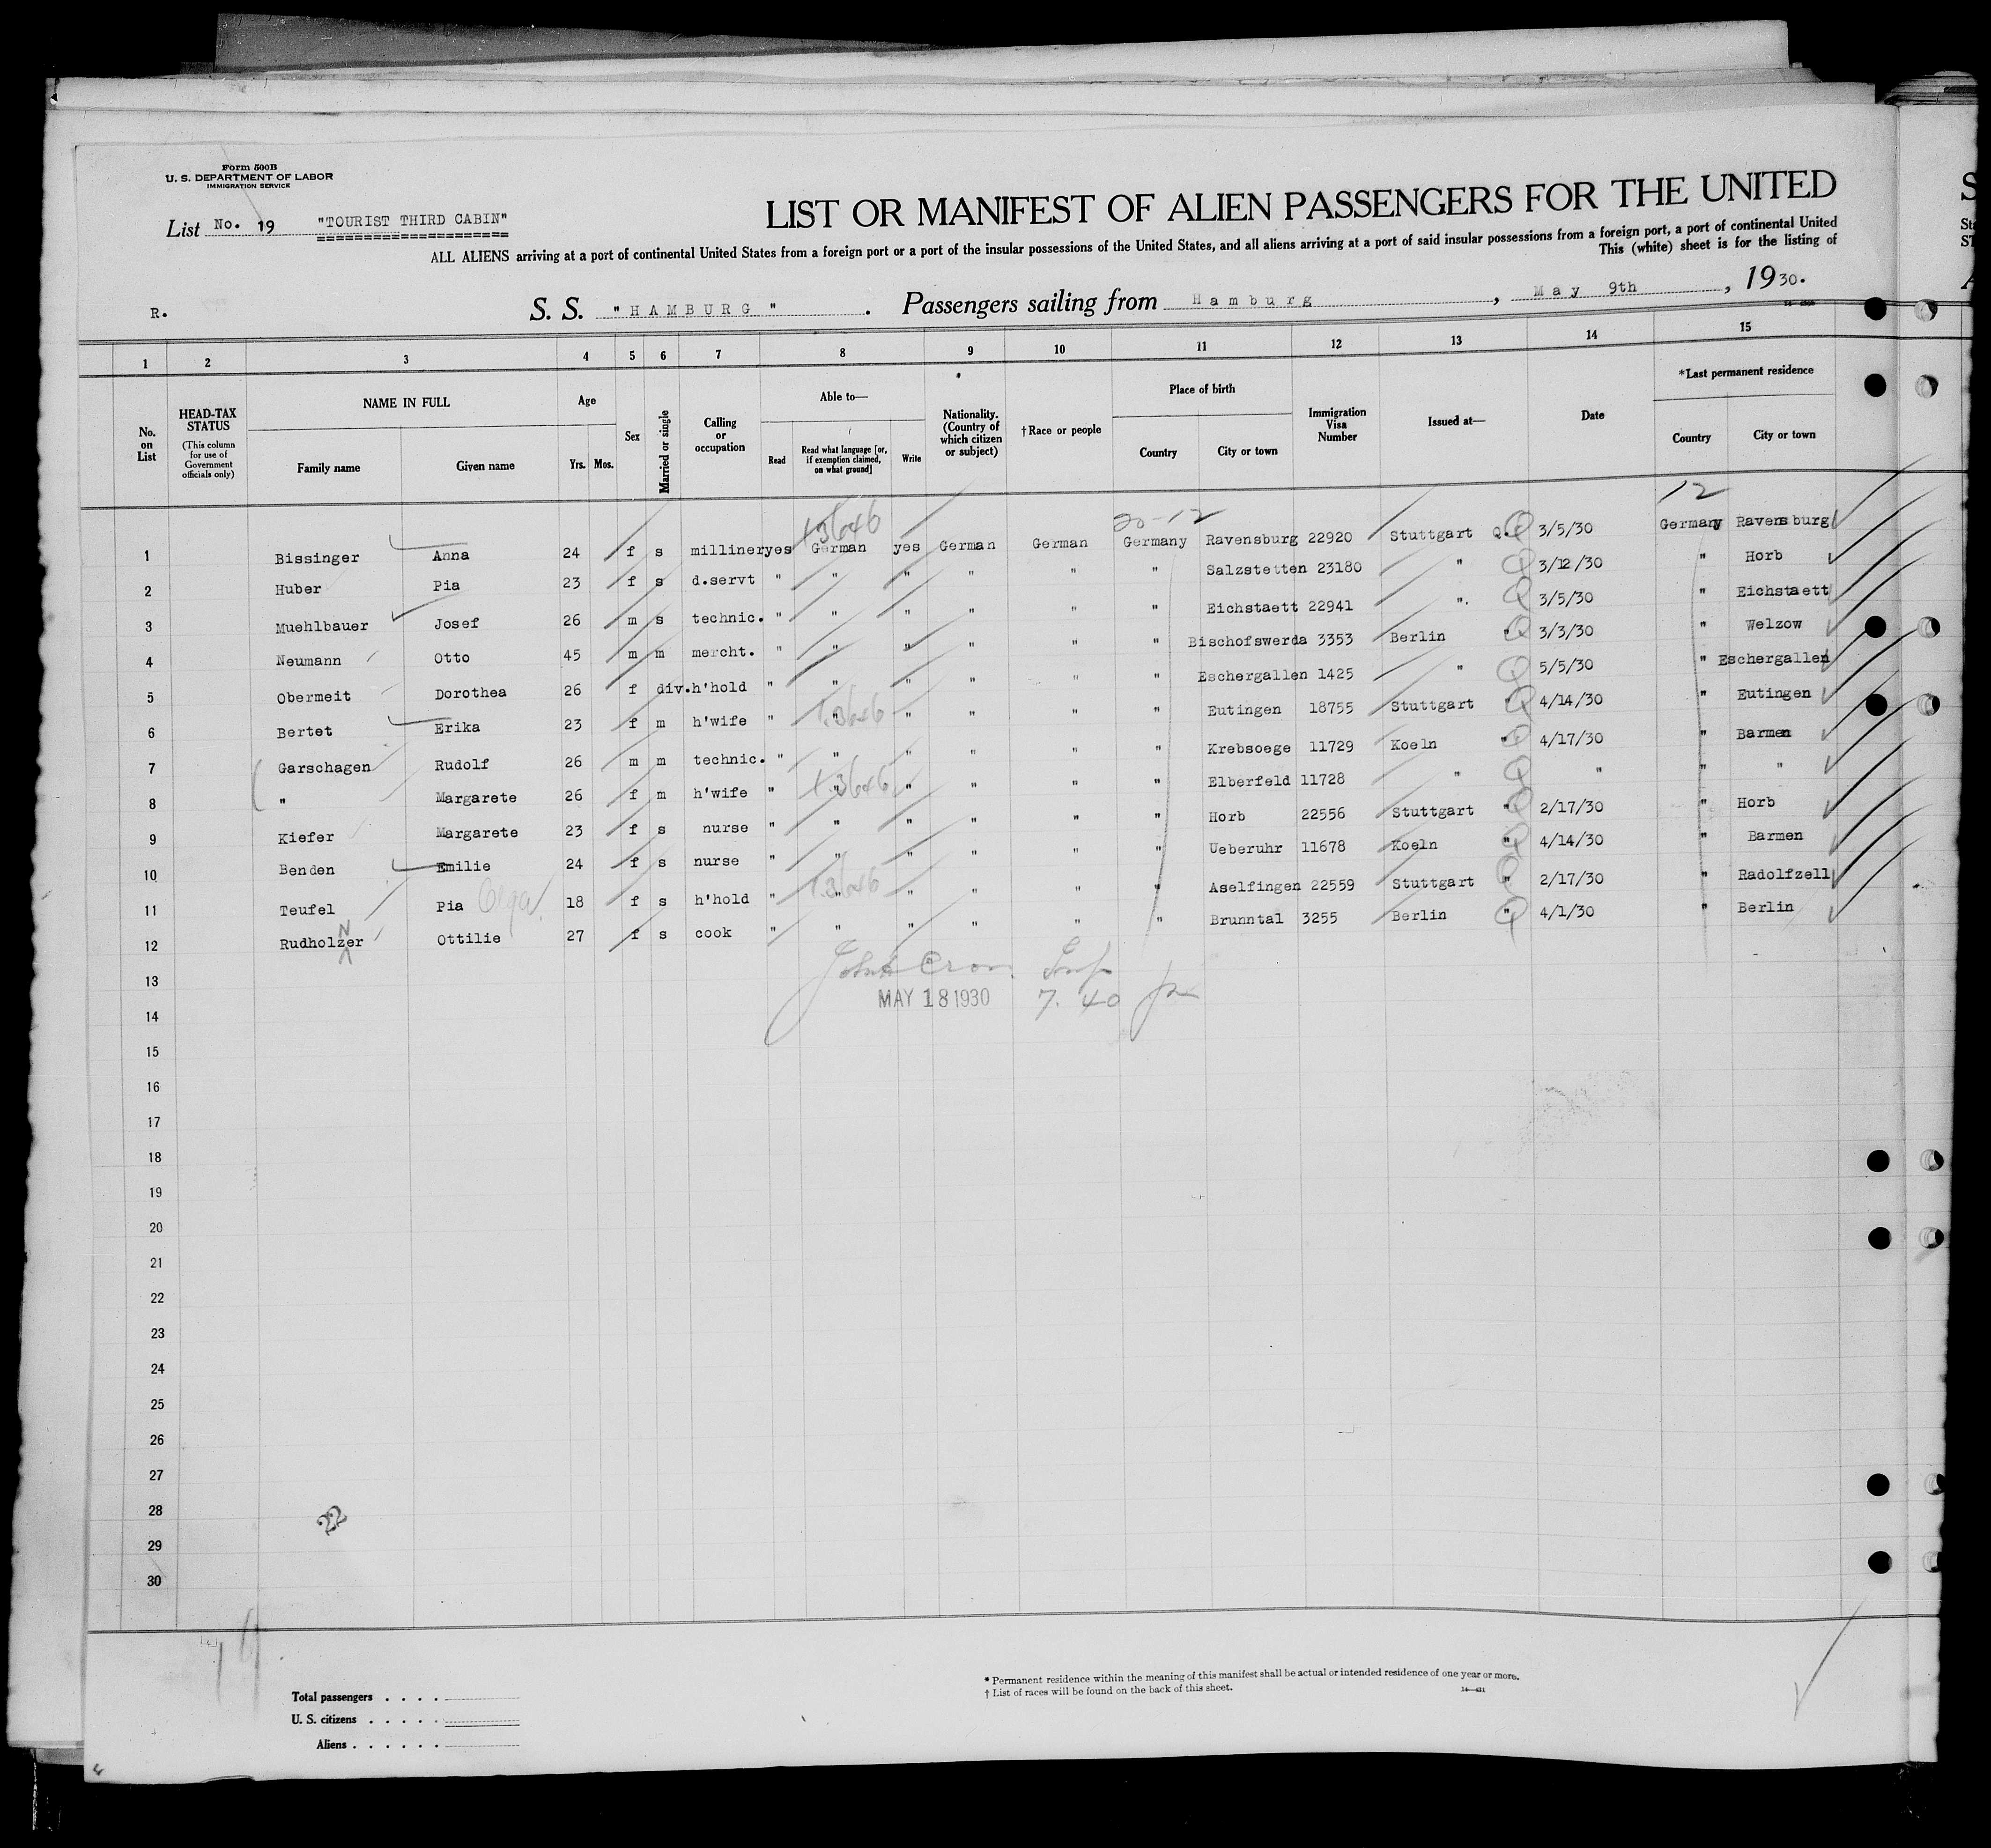 Form 500B
U. S. DEPARTMENT OF LABOR
IMMIGRATION SERVICE
List No. 19 "TOURIST THIRD CABIN"
LIST OR MANIFEST OF ALIEN PASSENGERS FOR THE UNITED
ALL ALIENS arriving at a port of continental United States from a foreign port or a port of the insular possessions of the United States, and all aliens arriving at a port of said insular possessions from a foreign port, a port of continental United
This (white) sheet is for the listing of
R. S. S. "HAMBURG". Passengers sailing from Hamburg, May 9th, 1930.
1 2 3 4 5 6 7 8 9 10 11 12 13 14 15
No. on List
HEAD-TAX STATUS (This column for use of Government officials only)
NAME IN FULL
Family name Given name
Age
Yrs. Mos.
Sex
Married or single
Calling or occupation
Able to—
Read Read what language [or, if exemption claimed, on what ground] Write
Nationality. (Country of which citizen or subject)
†Race or people
Place of birth
Country City or town
Immigration Visa Number
Issued at—
Date
*Last permanent residence
Country City or town
13646 20-12 12
1 Bissinger Anna 24 f s milliner yes German yes German German Germany Ravensburg 22920 Stuttgart Q. 3/5/30 Germany Ravensburg
2 Huber Pia 23 f s d.servt " " " " " " Salzstetten 23180 " 3/12/30 " Horb
3 Muehlbauer Josef 26 m s technic. " " " " " " Eichstaett 22941 " 3/5/30 " Eichstaett
4 Neumann Otto 45 m m mercht. " " " " " " Bischofswerda 3353 Berlin " 3/3/30 " Welzow
5 Obermeit Dorothea 26 f div. h'hold " " " " " " Eschergallen 1425 " 5/5/30 " Eschergallen
13646
6 Bertet Erika 23 f m h'wife " " " " " " Eutingen 18755 Stuttgart " 4/14/30 " Eutingen
7 Garschagen Rudolf 26 m m technic. " " " " " " Krebsoege 11729 Koeln " 4/17/30 " Barmen
13646
8 " Margarete 26 f m h'wife " " " " " " Elberfeld 11728 " " " "
9 Kiefer Margarete 23 f s nurse " " " " " " Horb 22556 Stuttgart " 2/17/30 " Horb
10 Benden Emilie 24 f s nurse " " " " " " Ueberuhr 11678 Koeln " 4/14/30 " Barmen
13646
11 Teufel Pia Olga 18 f s h'hold " " " " " " Aselfingen 22559 Stuttgart " 2/17/30 " Radolfzell
N
12 Rudholzer Ottilie 27 f s cook " " " " " " Brunntal 3255 Berlin " 4/1/30 " Berlin
13
MAY 18 1930 7.40
14
15
16
17
18
19
20
21
22
23
24
25
26
27
28
22
29
30
Total passengers . . . .
U. S. citizens . . . . .
Aliens . . . . . .
* Permanent residence within the meaning of this manifest shall be actual or intended residence of one year or more.
† List of races will be found on the back of this sheet.